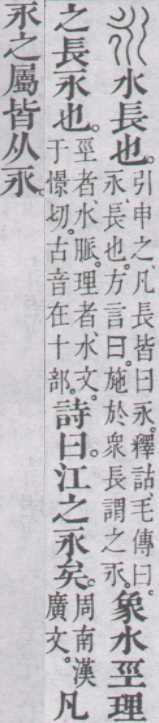 永 水長也。引申之。凡長皆曰永。釋詁、毛傳曰。永、長也。方言曰。施於衆長謂之永。象水巠理
之長永也。巠者、水脈。理者、水文。于憬切。古音在十部。詩曰。江之永矣。周南漢廣文。凡
永之屬皆从永。